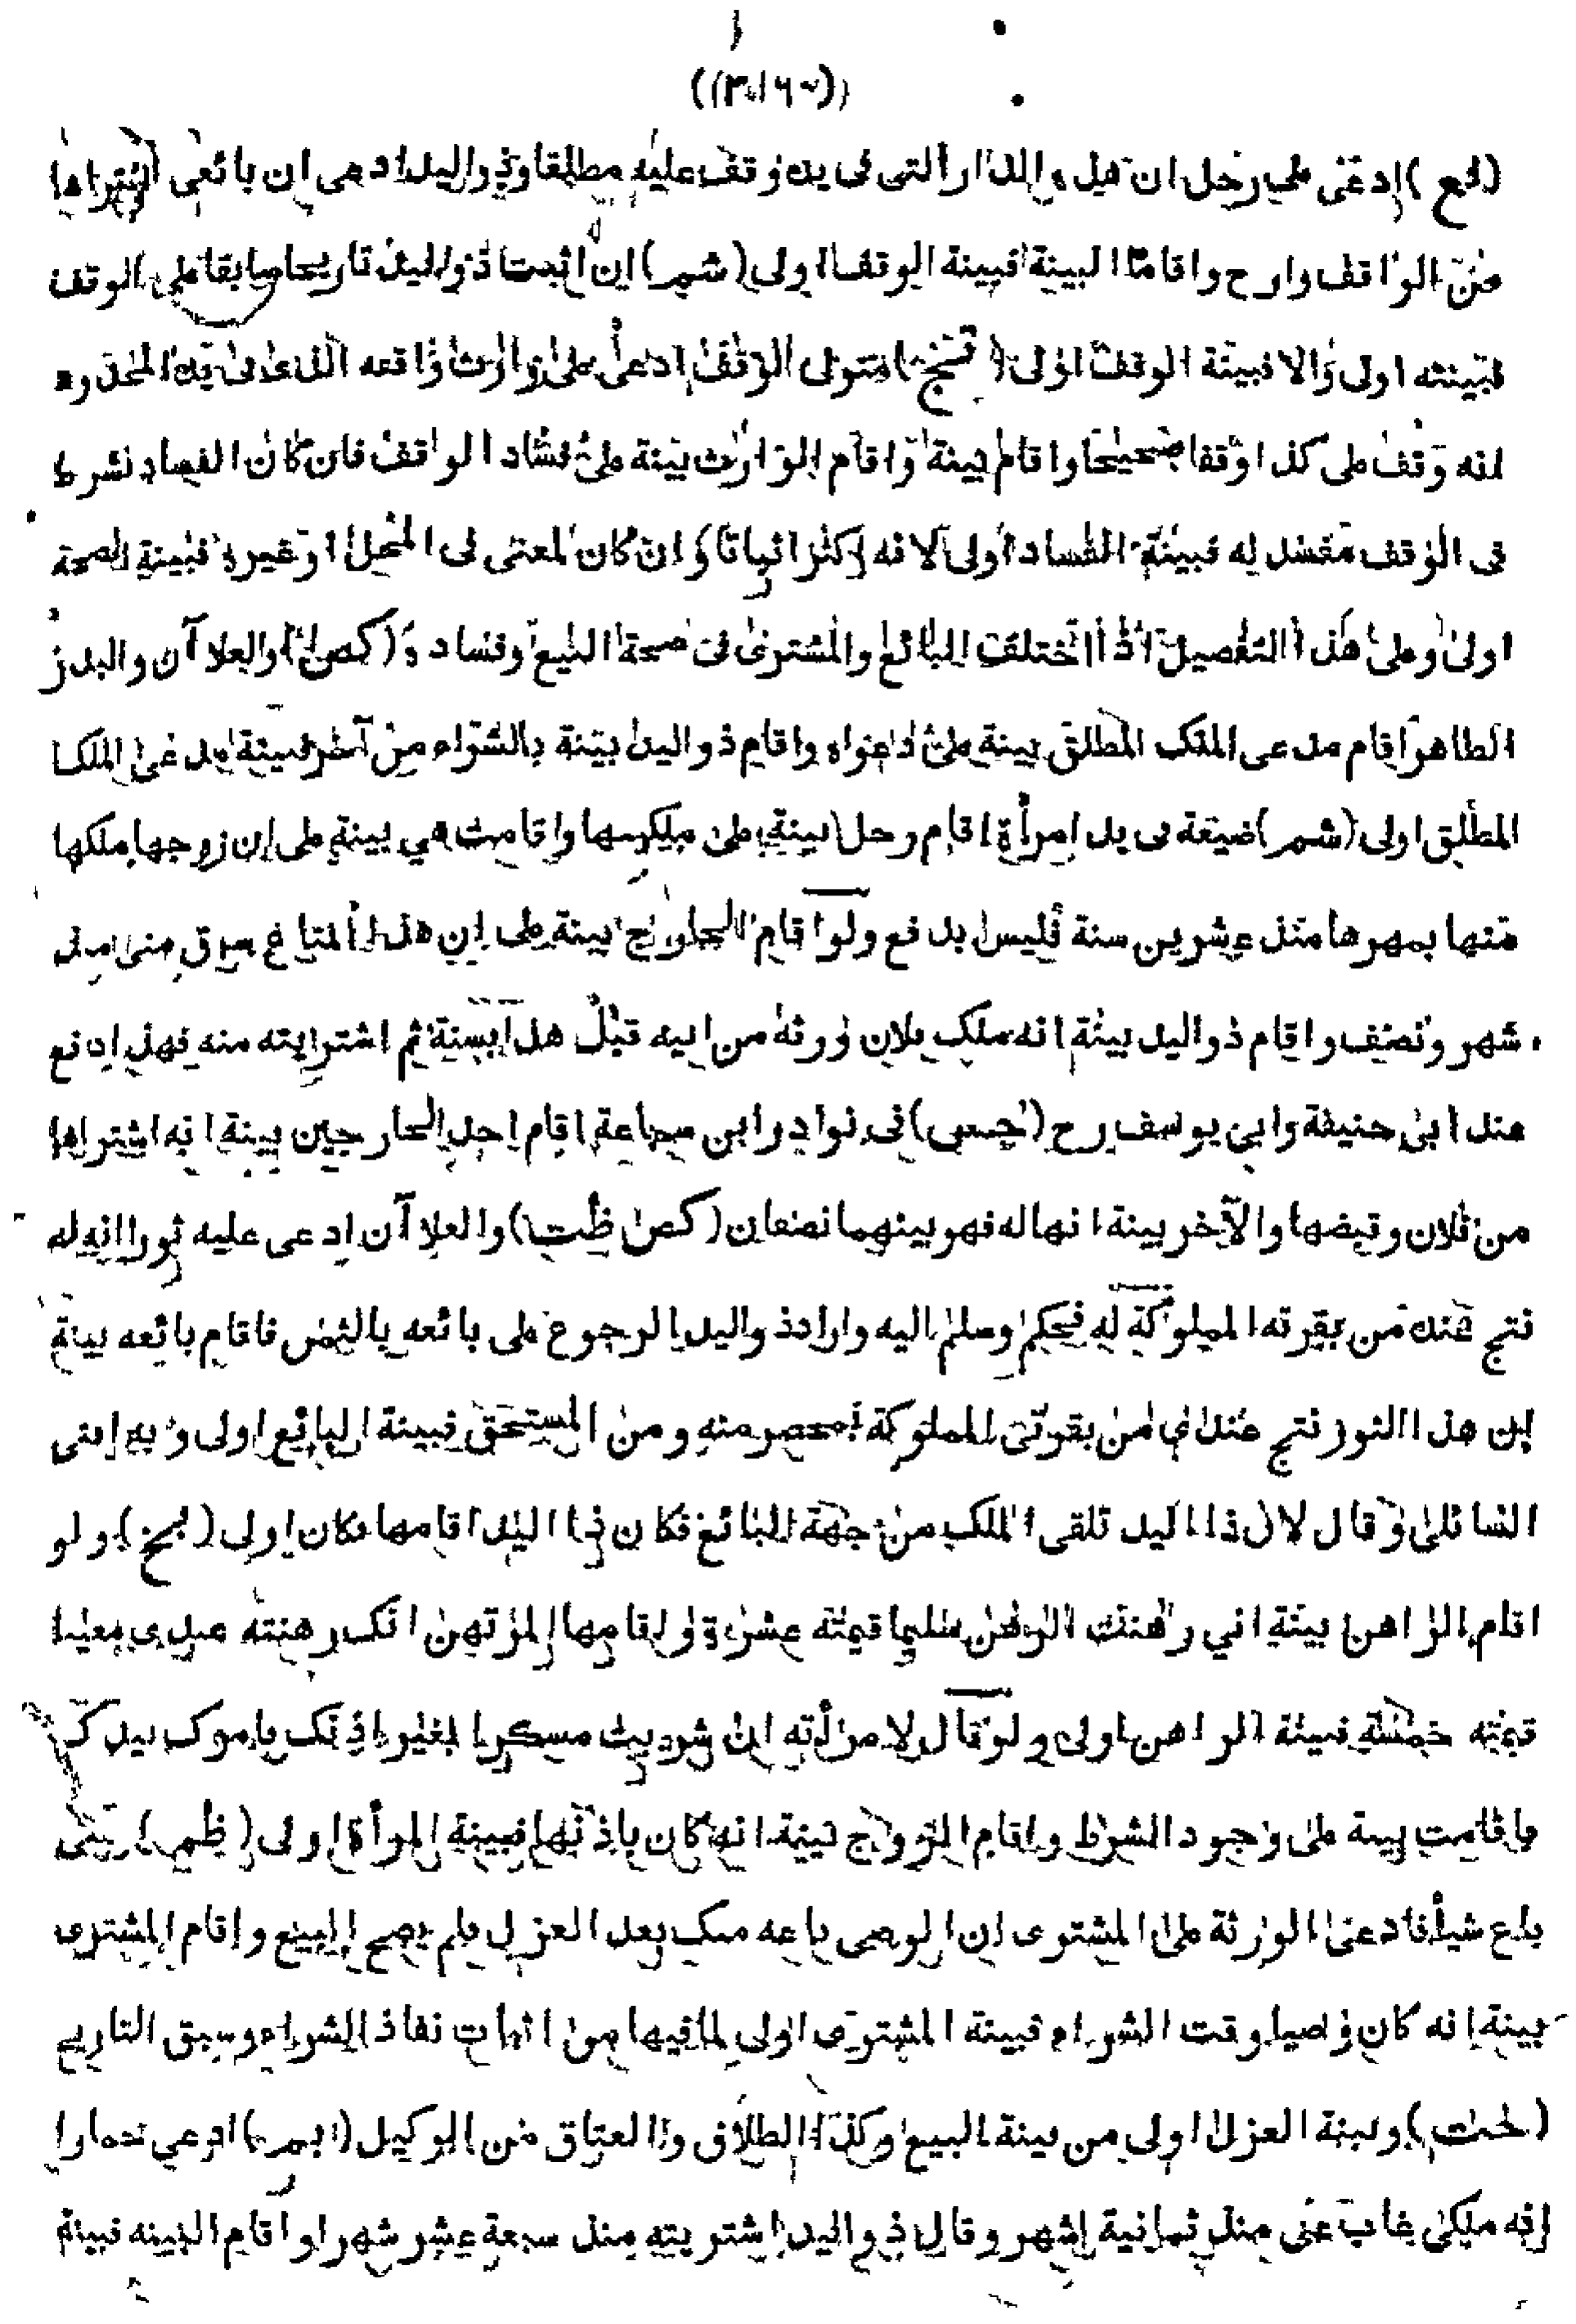 (لمع) ادعى على رجل ان هذه الدار التى فى يده وقف عليه مطلقا وذو اليد ادعى ان بائعى اشتراها
من الواقف وارح واقاما البينة فبينة الوقف اولى (شم) ان اثبت ذو اليد تاريخا سابقا على الوقف
فبينته اولى والا فبينة الوقف اولى متولى الوقف ادعى على وارث واقفه الذى فى يده المحدود
انه وقف على كذا وقفا صحيحا واقام بينة واقام الوارث بينة على فساد الواقف فان كان الفساد بشرط
فى الوقف مفسد له فبينة الفساد اولى لانه اكثر اثباتا وان كان لمعنى فى المحل او غيره فبينة الصحة
اولى وعلى هذا التفصيل اذا اختلف البائع والمشترى فى صحة البيع وفساده (كص) والعلاآن والبدر
الطاهر اقام مدعى الملك المطلق بينة على دعواه واقام ذو اليد بينة بالشراء من آخر فبينة مدعى الملك
المطلق اولى (شم) ضيعة فى يد امرأة اقام رجل بينة على ملكيتها واقامت هي بينة على ان زوجها ملكها
منها بمهرها منذ عشرين سنة فليس بدفع ولو اقام الخارج بينة على ان هذا المتاع سرق منى منذ
شهر ونصف واقام ذو اليد بينة انه ملك فلان ورثه من ابيه قبل هذا بسنة ثم اشتريته منه فهذا دفع
عند ابى حنيفة وابى يوسف رح فى نوادر ابن سماعة اقام احد الخارجين بينة انه اشتراها
من فلان وقبضها والآخر بينة انها له فهو بينهما نصفان (كص ظت) والعلاآن ادعى عليه ثورا انه له
نتج عنده من بقرته المملوكة له فحكم وسلم اليه واراد ذو اليد الرجوع على بائعه بالثمن فاقام بائعه بينة
ان هذا الثور نتج عندي من بقرتى المملوكة بمحضر منه ومن المستحق فبينة البائع اولى وبه افتى
السائلى وقال لان ذا اليد تلقى الملك من جهة البائع فكان ذا اليد اقامها فكان اولى (بخ) ولو
اقام الراهن بينة اني رهنتك الرهن سليما قيمته عشرة ولقامها المرتهن انك رهنته عبدى معيبا
قيمته خمسة فبينة الراهن اولى ولو قال لامرأته ان شربت مسكرا بغير اذنك فامرك بيدك
فاقامت بينة على وجود الشرط واقام الزوج بينة انه كان باذنها فبينة المرأة اولى (ظم)
باع شيأ فادعى الورثة على المشترى ان الوصى باعه منك بعد العزل فلم يصح البيع واقام المشترى
بينة انه كان وصيا وقت الشراء فبينة المشترى اولى لما فيها من اثبات نفاذ الشراء وسبق التاريخ
وبينة العزل اولى من بينة البيع وكذا الطلاق والعتاق من الوكيل (بم) ادعى حمارا
انه ملكى غاب عنى منذ ثمانية اشهر وقال ذو اليد اشتريته منذ سبعة عشر شهرا واقام البينه فبينة